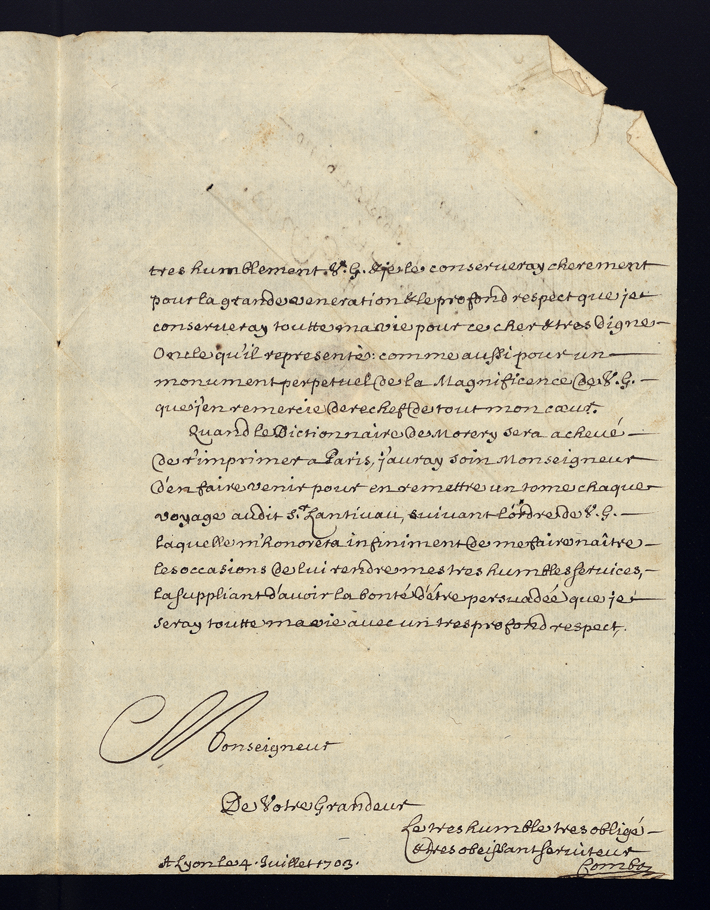 tres humblement V.G. & je le conserveray cherement
pour la grande veneration & le profond respect que je
conserveray toutte ma vie pour ce cher & tres digne
Oncle qu'il representé: comme aussi pour un
monument perpetuel de la Magnificence de V.G.
que j'en remercie derechef de tout mon cœur.
Quand le Dictionnaire de Morery sera achevé
de r'imprimer a Paris, j'auray soin Monseigneur
d'en faire venir pour en remettre un tome chaque
voyage audit Sr. Lantivau, suivant l'ordre de V.G.
laquelle m'honorera infiniment de me faire naître
les occasions de lui rendre mes tres humbles services,
la suppliant d'avoir la bonté d'étre persuadée que je
seray toutte ma vie avec un tres profond respect.
Monseigneur
De Votre Grandeur
Le tres humble tres obligé
& tres obeissant serviteur
A Lyon le 4. Juillet 1703.
Combe